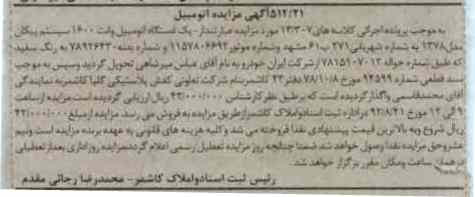 ۵۱۲/۲۱آگهی مزایده اتومبیل
به موجب پرونده اجرائی کلاسه های۱۳۳۰۷ مورد مزایده عبارتنداز-یک دستگاه اتومبیل وانت ۱۶۰۰ سیستم پیکان
مدل۱۳۷۸ به شماره شهربانی۲۷۱ ب۶۱ مشهد وشماره موتور۱۱۵۷۸۰۶۶۹۲ و شماره بدنه۷۸۹۲۶۴۳۰ به رنگ سفید،
که طبق شماره حواله ۷۸۱۵۱۰۷۰۱۲ ازشرکت ایران خودرو به نام آقای عباس میرشاهی تحویل گردید وسپس به موجب
سند قطعی شماره ۹۴۵۹۹ مورخ ۷۸/۱۰/۸ دفتر۲۳ کاشمربنام شرکت تعاونی کفش پلاستیکی گلپا کاشمربه نمایندگی
آقای محمدقاسمی واگذارگردیده است که برطبق نظرکارشناس ۴۳/۰۰۰/۰۰۰ ریال ارزیابی گردیده است مزایده ازساعت
۹ الی ۱۲ مورخ ۹۲/۸/۲۱ دراداره ثبت اسنادواملاک کاشمرازطریق مزایده به فروش می رسد. مزایده ازمبلغ۴۳/۰۰۰/۰۰۰
ریال شروع وبه بالاترین قیمت پیشنهادی نقدا فروخته می شد وکلیه هزینه های قانونی به عهده برنده مزایده است ونیم
عشروحق مزایده نقدا وصول خواهد شد ضمنا چنانچه روز مزایده تعطیل رسمی اعلام گرددمزایده روزاداری بعدازتعطیلی
درهمان ساعت ومکان مقرر برگزار خواهد شد.
رئیس ثبت اسنادواملاک کاشمر-محمدرضا رجائی مقدم